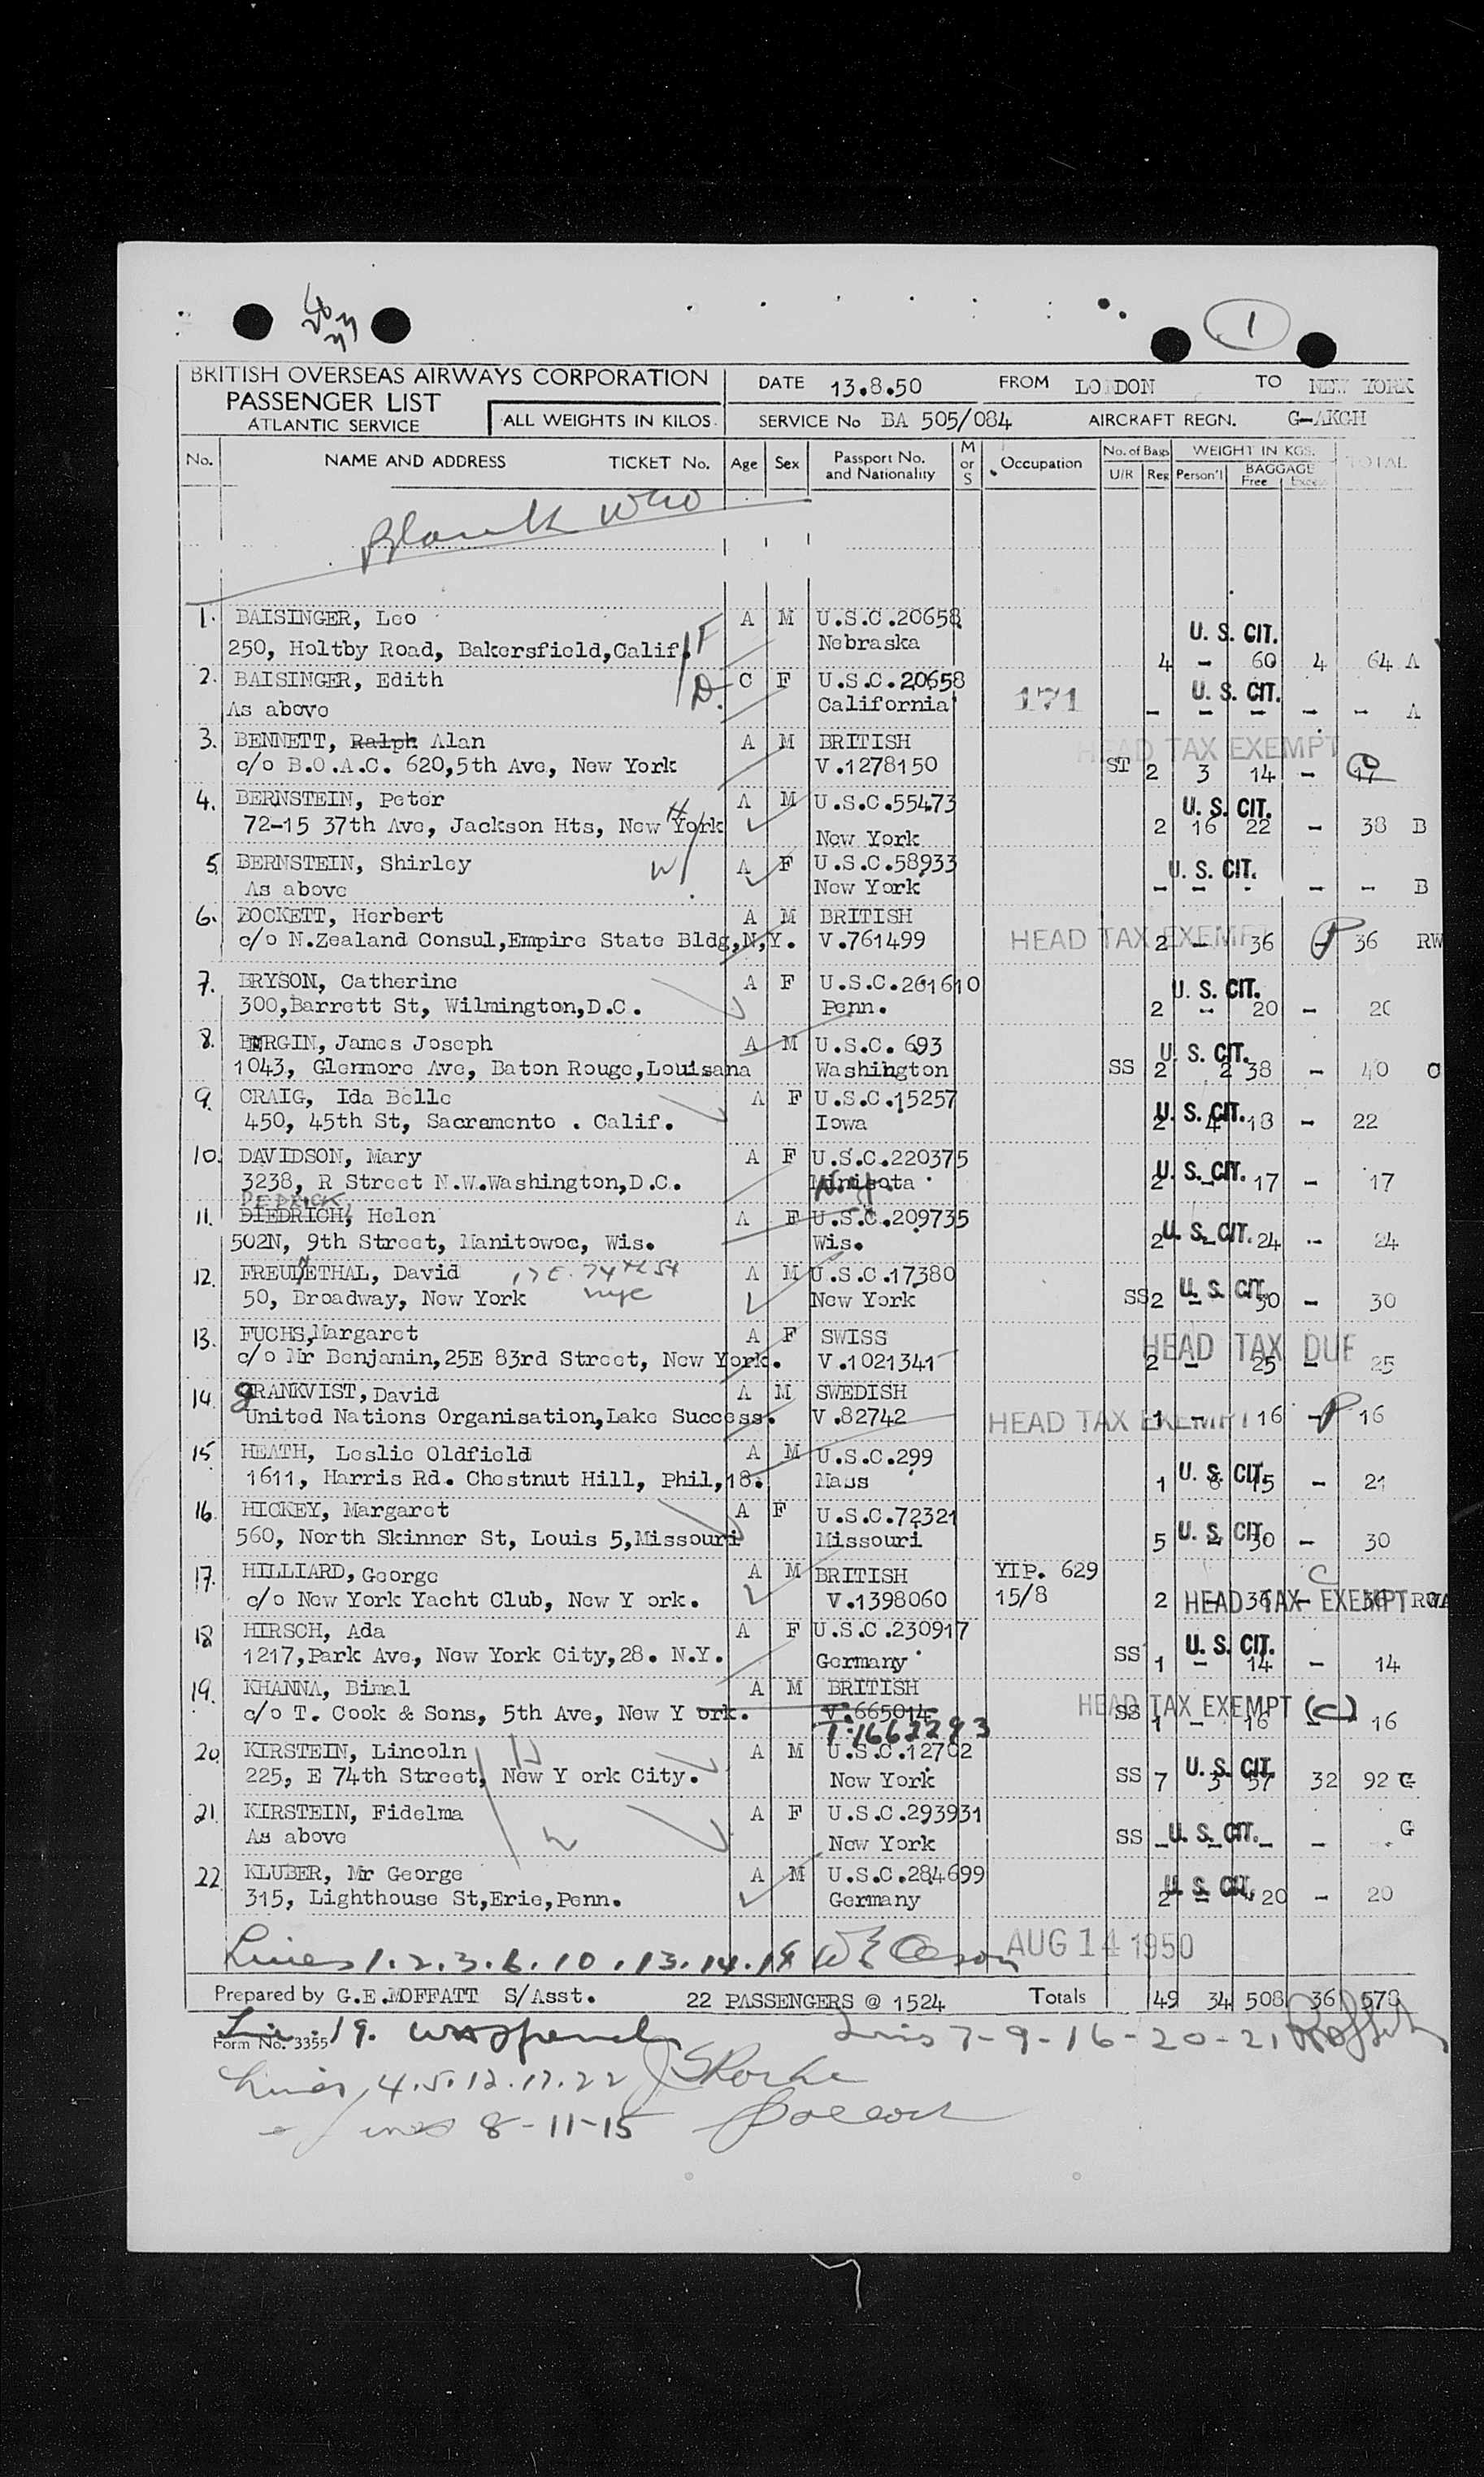 1
BRITISH OVERSEAS AIRWAYS CORPORATION
PASSENGER LIST
ATLANTIC SERVICE
ALL WEIGHTS IN KILOS
DATE 13.8.50 FROM LONDON TO NEW YORK
SERVICE No BA 505/084 AIRCRAFT REGN. G-AKGH
No. NAME AND ADDRESS TICKET No. Age Sex Passport No. and Nationality M or S Occupation No. of Bags U/R Reg WEIGHT IN KGS. Person'l BAGGAGE Free Excess TOTAL
Blank
1. BAISINGER, Leo A M U.S.C.20658 U. S. CIT.
250, Holtby Road, Bakersfield,Calif. F Nebraska 4 - 60 4 64 A
2. BAISINGER, Edith D. C F U.S.C.20658 171 U. S. CIT.
As above California - - - - - A
3. BENNETT, Ralph Alan A M BRITISH HEAD TAX EXEMPT
c/o B.O.A.C. 620,5th Ave, New York V.1278150 ST 2 3 14 -
4. BERNSTEIN, Peter H A M U.S.C.55473 U. S. CIT.
72-15 37th Ave, Jackson Hts, New York New York 2 16 22 - 38 B
5. BERNSTEIN, Shirley W A F U.S.C.58933 U. S. CIT.
As above New York - - - - - B
6. BOCKETT, Herbert A M BRITISH
c/o N.Zealand Consul,Empire State Bldg,N,Y. V.761499 HEAD TAX EXEMPT 2 - 36 - 36 RW
7. BRYSON, Catherine A F U.S.C.261610 U. S. CIT.
300,Barrett St, Wilmington,D.C. Penn. 2 - 20 - 20
8. BERGIN, James Joseph A M U.S.C. 693 U. S. CIT.
1043, Glenmore Ave, Baton Rouge,Louisana Washington SS 2 2 38 - 40 C
9. CRAIG, Ida Belle A F U.S.C.15257 U. S. CIT.
450, 45th St, Sacramento . Calif. Iowa 2 4 18 - 22
10. DAVIDSON, Mary A F U.S.C.220375 U. S. CIT.
3238, R Street N.W.Washington,D.C. Minisota N.Y. 2 - 17 - 17
DEDRICK
11. DIEDRICH, Helen A F U.S.C.209735 U. S. CIT.
502N, 9th Street, Manitowoc, Wis. Wis. 2 - 24 - 24
12. FREUDETHAL, David 17 E. 74th St A M U.S.C.17380 U. S. CIT.
50, Broadway, New York nyc New York SS 2 - 30 - 30
13. FUCHS,Margaret A F SWISS HEAD TAX DUE
c/o Mr Benjamin,25E 83rd Street, New York. V.1021341 2 - 25 - 25
14. GRANKVIST, David A M SWEDISH
United Nations Organisation,Lake Success. V.82742 HEAD TAX EXEMPT 1 - 16 - 16
15. HEATH, Leslie Oldfield A M U.S.C.299 U. S. CIT.
1611, Harris Rd. Chestnut Hill, Phil,18. Mass 1 6 15 - 21
16. HICKEY, Margaret A F U.S.C.72321 U. S. CIT.
560, North Skinner St, Louis 5,Missouri Missouri 5 - 30 - 30
17. HILLIARD, George A M BRITISH YIP. 629 C
c/o New York Yacht Club, New Y ork. V.1398060 15/8 2 - 36 - 36 HEAD TAX EXEMPT
18 HIRSCH, Ada A F U.S.C.230917 U. S. CIT.
1217,Park Ave, New York City,28. N.Y. Germany SS 1 - 14 - 14
19. KHANNA, Bimal A M BRITISH HEAD TAX EXEMPT (C)
c/o T. Cook & Sons, 5th Ave, New Y ork. V.665014 SS 1 - 16 - 16
T.1662293
20. KIRSTEIN, Lincoln H A M U.S.C.12702 U. S. CIT.
225, E 74th Street, New Y ork City. New York SS 7 3 57 32 92 G
21. KIRSTEIN, Fidelma W A F U.S.C.293931 U. S. CIT.
As above New York SS - - - - - G
22. KLUBER, Mr George A M U.S.C.284699 U. S. CIT.
315, Lighthouse St,Erie,Penn. Germany 2 - 20 - 20
Lines 1. 2. 3. 6. 10. 13. 14. 18 AUG 14 1950
Prepared by G.E.MOFFATT S/Asst. 22 PASSENGERS @ 1524 Totals 49 34 508 36 578
Form No. 3355 Line 19. Lines 7-9-16-20-21
Lines 4. 5. 12. 17. 22
Lines 8-11-15